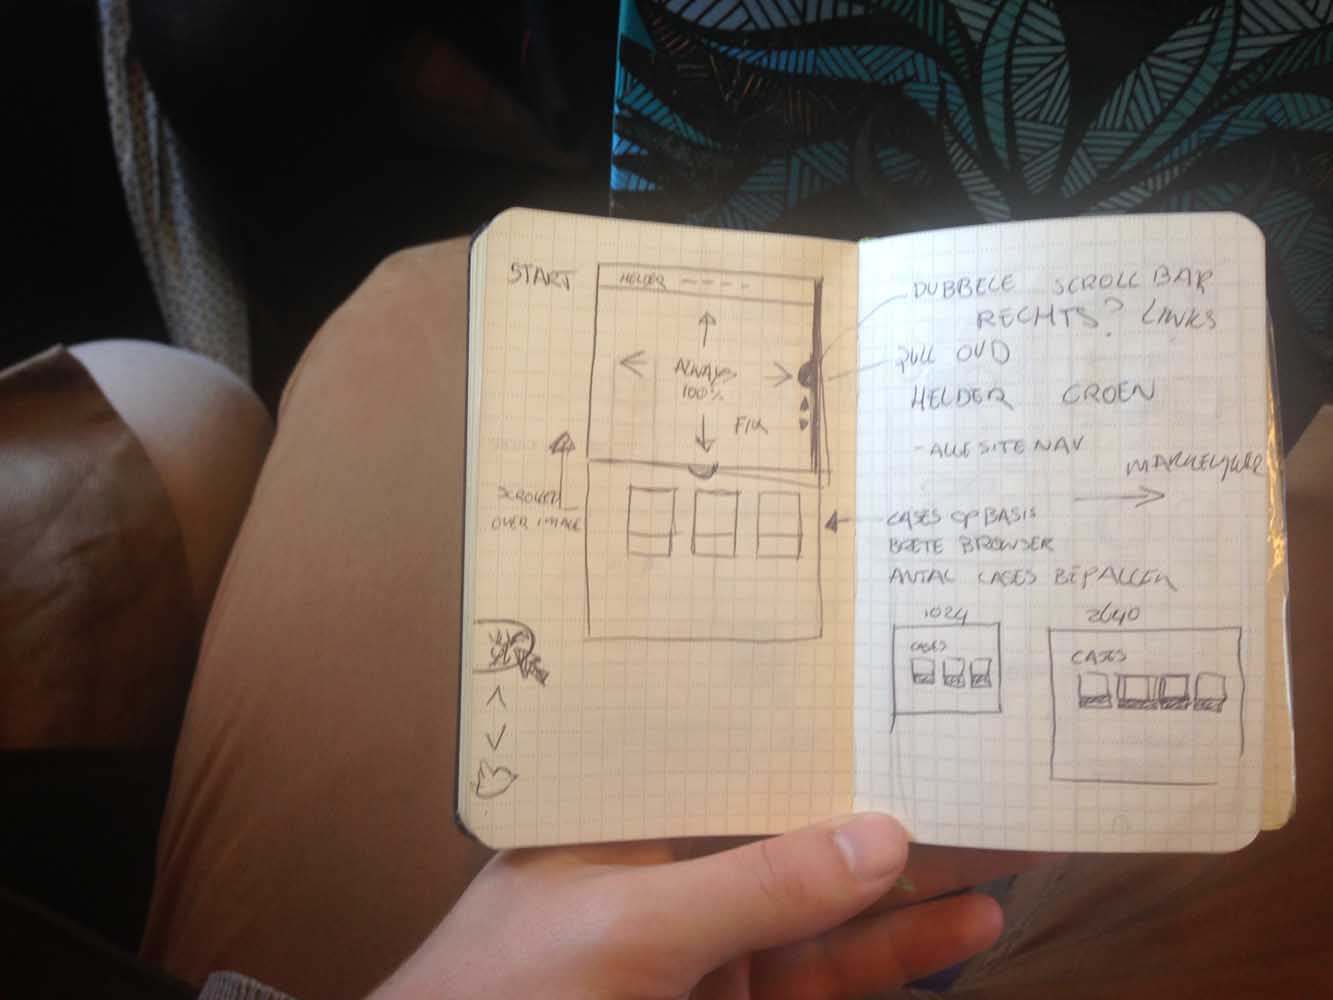 START
HELDER
ALWAYS
100%
FIX
SCROLLED
OVER IMAGE
DUBBELE SCROLLBAR
RECHTS? LINKS
PULL OUD
HELDER GROEN
- ALLE SITE NAV
CASES OP BASIS
BRETE BROWSER
ANTAL CASES BEPALLEN
1024
CASES
2640
CASES